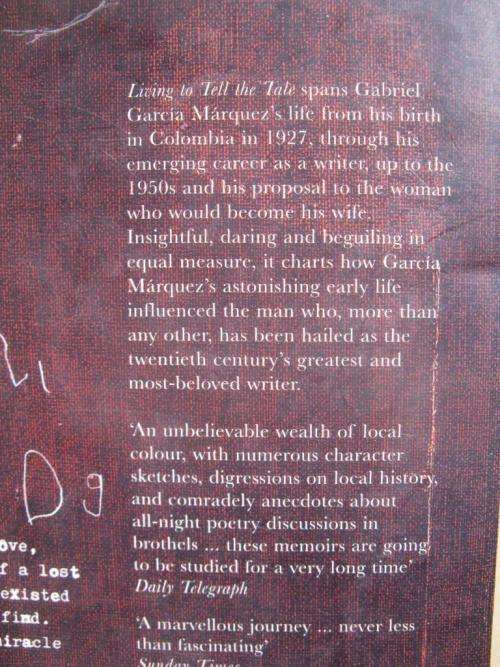 Living to Tell the Tale spans Gabriel
García Márquez's life from his birth
in Colombia in 1927, through his
emerging career as a writer, up to the
1950s and his proposal to the woman
who would become his wife.
Insightful, daring and beguiling in
equal measure, it charts how García
Márquez's astonishing early life
influenced the man who, more than
any other, has been hailed as the
twentieth century's greatest and
most-beloved writer.
'An unbelievable wealth of local
colour, with numerous character
sketches, digressions on local history,
and comradely anecdotes about
all-night poetry discussions in
brothels ... these memoirs are going
to be studied for a very long time'
Daily Telegraph
'A marvellous journey ... never less
than fascinating'
Sunday Times
D g
ove,
f a lost
existed
find.
iracle